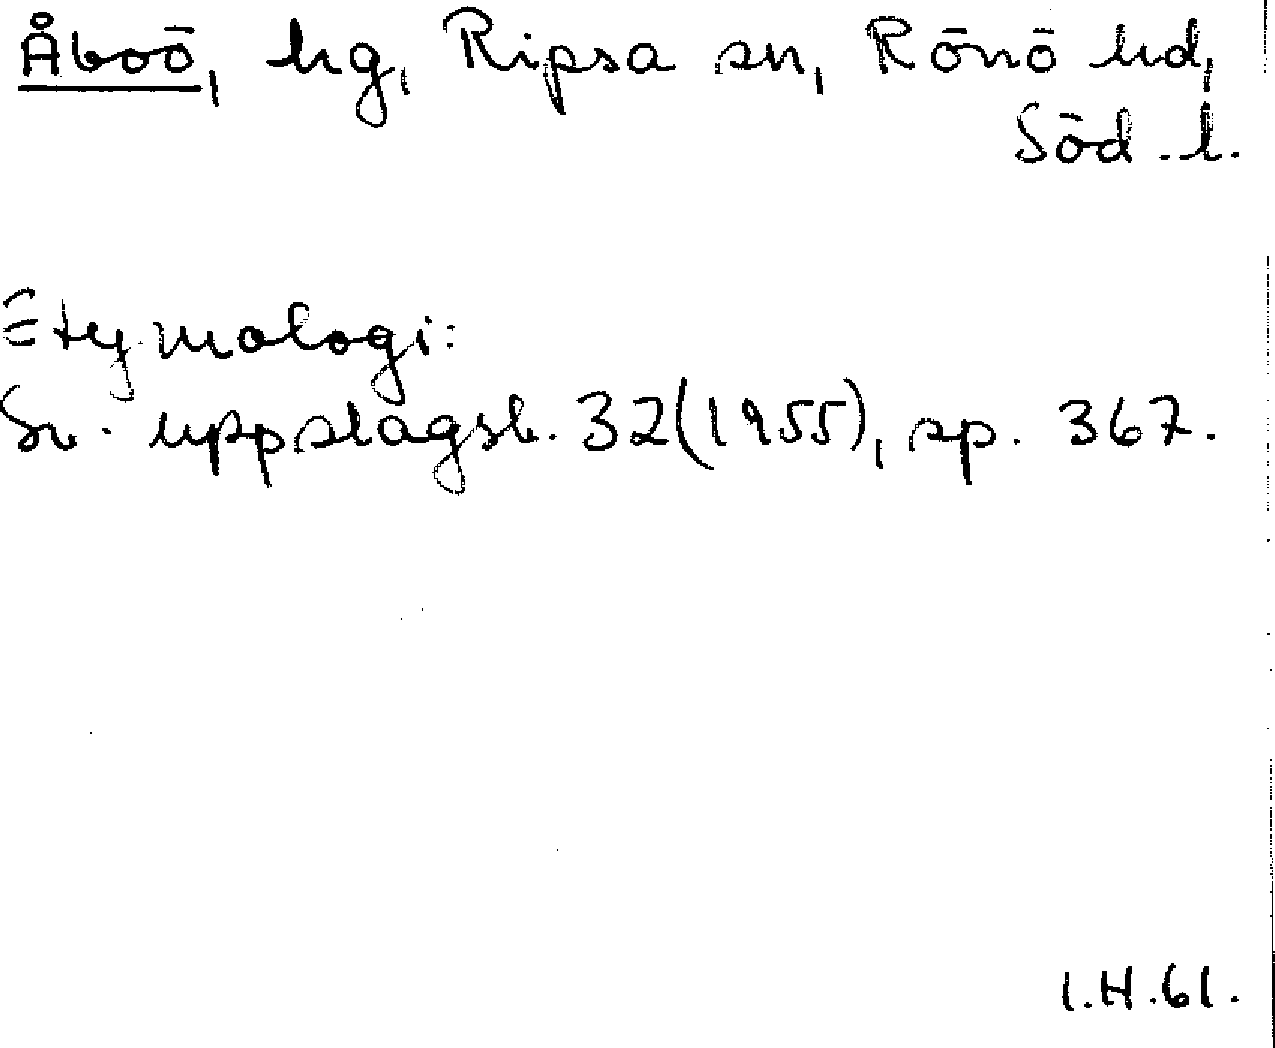 Åboö, hg, Ripsa sn, Rönö hd,
Söd. l.
Etymologi:
Sv. uppslagsb. 32(1955), sp. 367.
I.H.61.